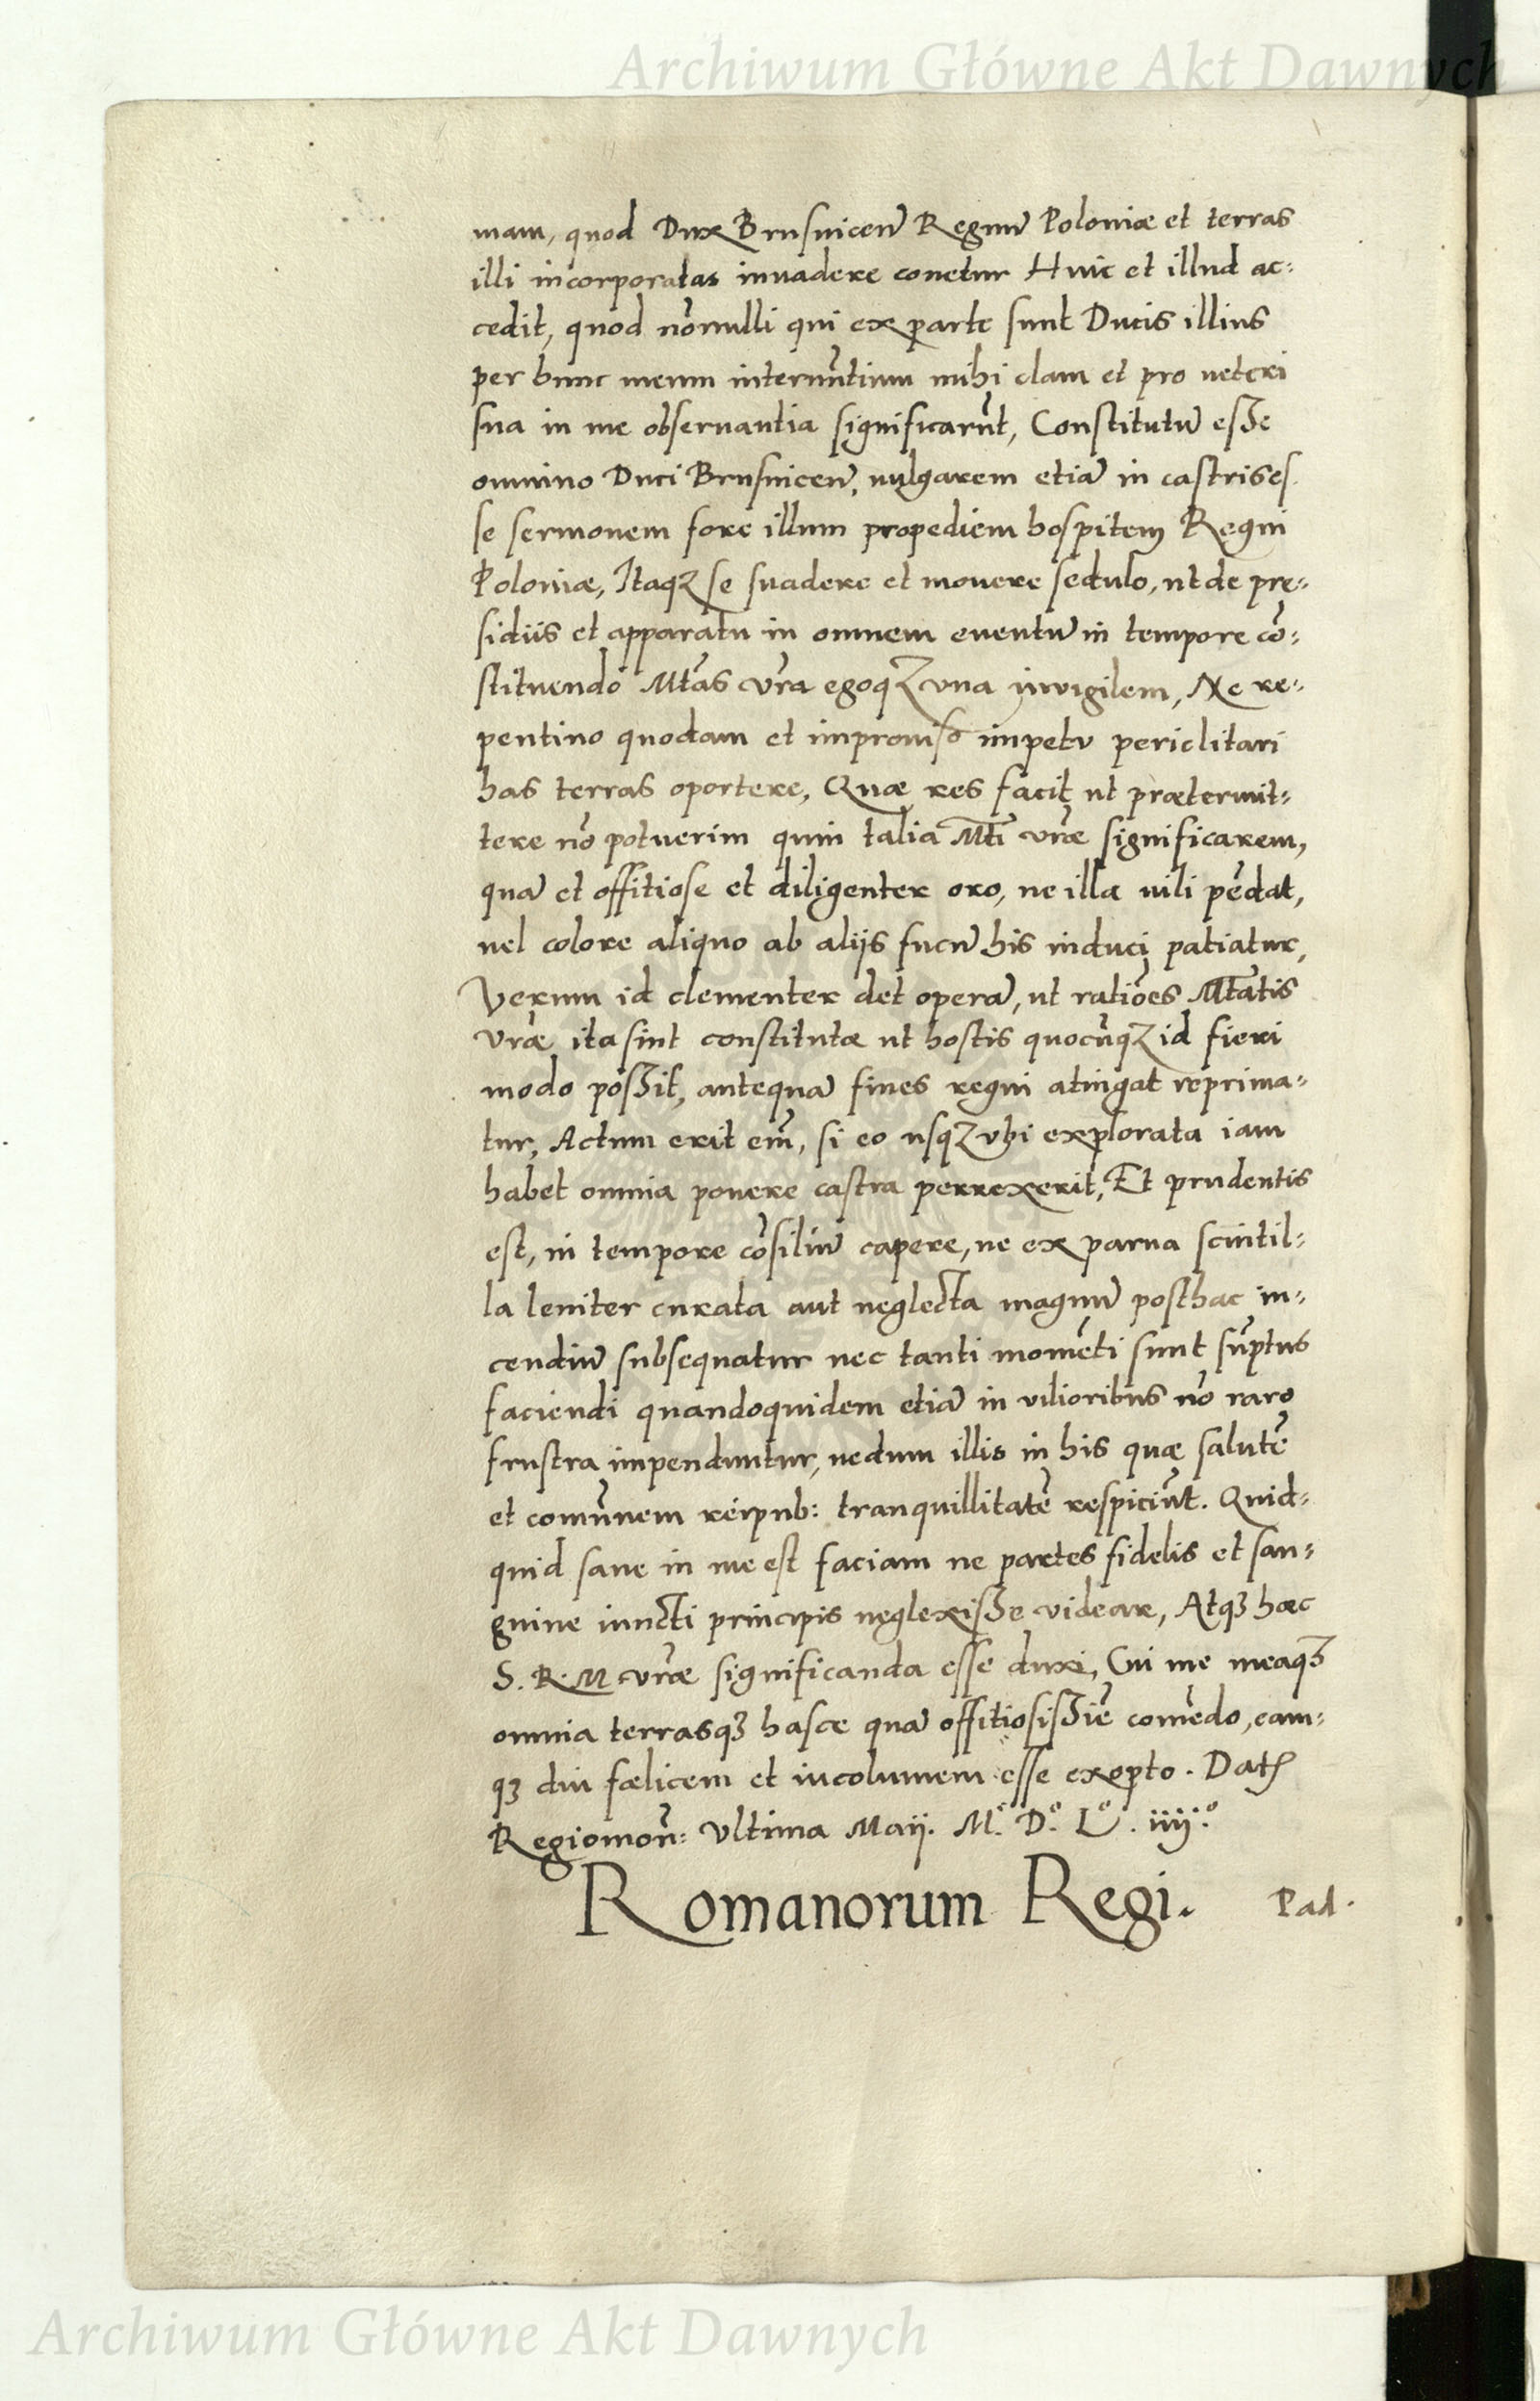 Archiwum Główne Akt Dawnych
mam, quod Dux Brusuicen̄ Regnū Poloniæ et terras
illi incorporatas inuadere conetur Huic et illud ac-
cedit, quod nōnulli qui ex parte sunt Ducis illius
per hunc meum internūtium mihi clam et pro ueteri
sua in me obseruantia significarūt, Constitutū esse
omnino Duci Brusuicen̄, uulgarem etiā in castris es
se sermonem fore illum propediem hospitem Regni
Poloniæ, Itaqꝫ se suadere et mouere sedulo, ut de pre-
sidiis et apparatu in omnem euentū in tempore cō-
stituendo Mtās vr̄a egoqꝫ vna inuigilem, Ne re-
pentino quodam et improuiso impetu periclitari
has terras oportere, Quæ res facit ut prætermit-
tere nō potuerim quin talia Mtī vr̄æ significarem,
quā et offitiose et diligenter oro, ne illa uili pēdat,
uel colore aliquo ab aliis fucū his induci patiatur,
Verum id clementer det operā, ut ratiōes Mtātis
vr̄æ ita sint constitutæ ut hostis quocūqꝫ id fieri
modo possit, antequā fines regni atingat reprima-
tur, Actum erit em̄, si eo usqꝫ vbi explorata iam
habet omnia ponere castra perrexerit, Et prudentis
est, in tempore cōsiliū capere, ne ex parua scintil-
la leniter curata aut neglecta magnū posthac in-
cendiū subsequatur nec tanti momēti sunt sūptus
faciendi quandoquidem etiā in vilioribus nō raro
frustra impenduntur, nedum illis in his quæ salutē
et comūnem reipub: tranquillitatē respiciūt. Quid-
quid sane in me est faciam ne partes fidelis et san-
guine iuncti principis neglexisse videar, Atqꝫ hæc
S. R. M vr̄æ significanda esse duxi, Cui me meaqꝫ
omnia terrasqꝫ hasce quā offitiosissiē comēdo, eam-
qꝫ diu fælicem et incolumem esse exopto. Datꝭ
Regiomon̄: Vltima Maij. Mº. Dº. Lº. iiijº.
Romanorum Regi. Pad.
Archiwum Główne Akt Dawnych